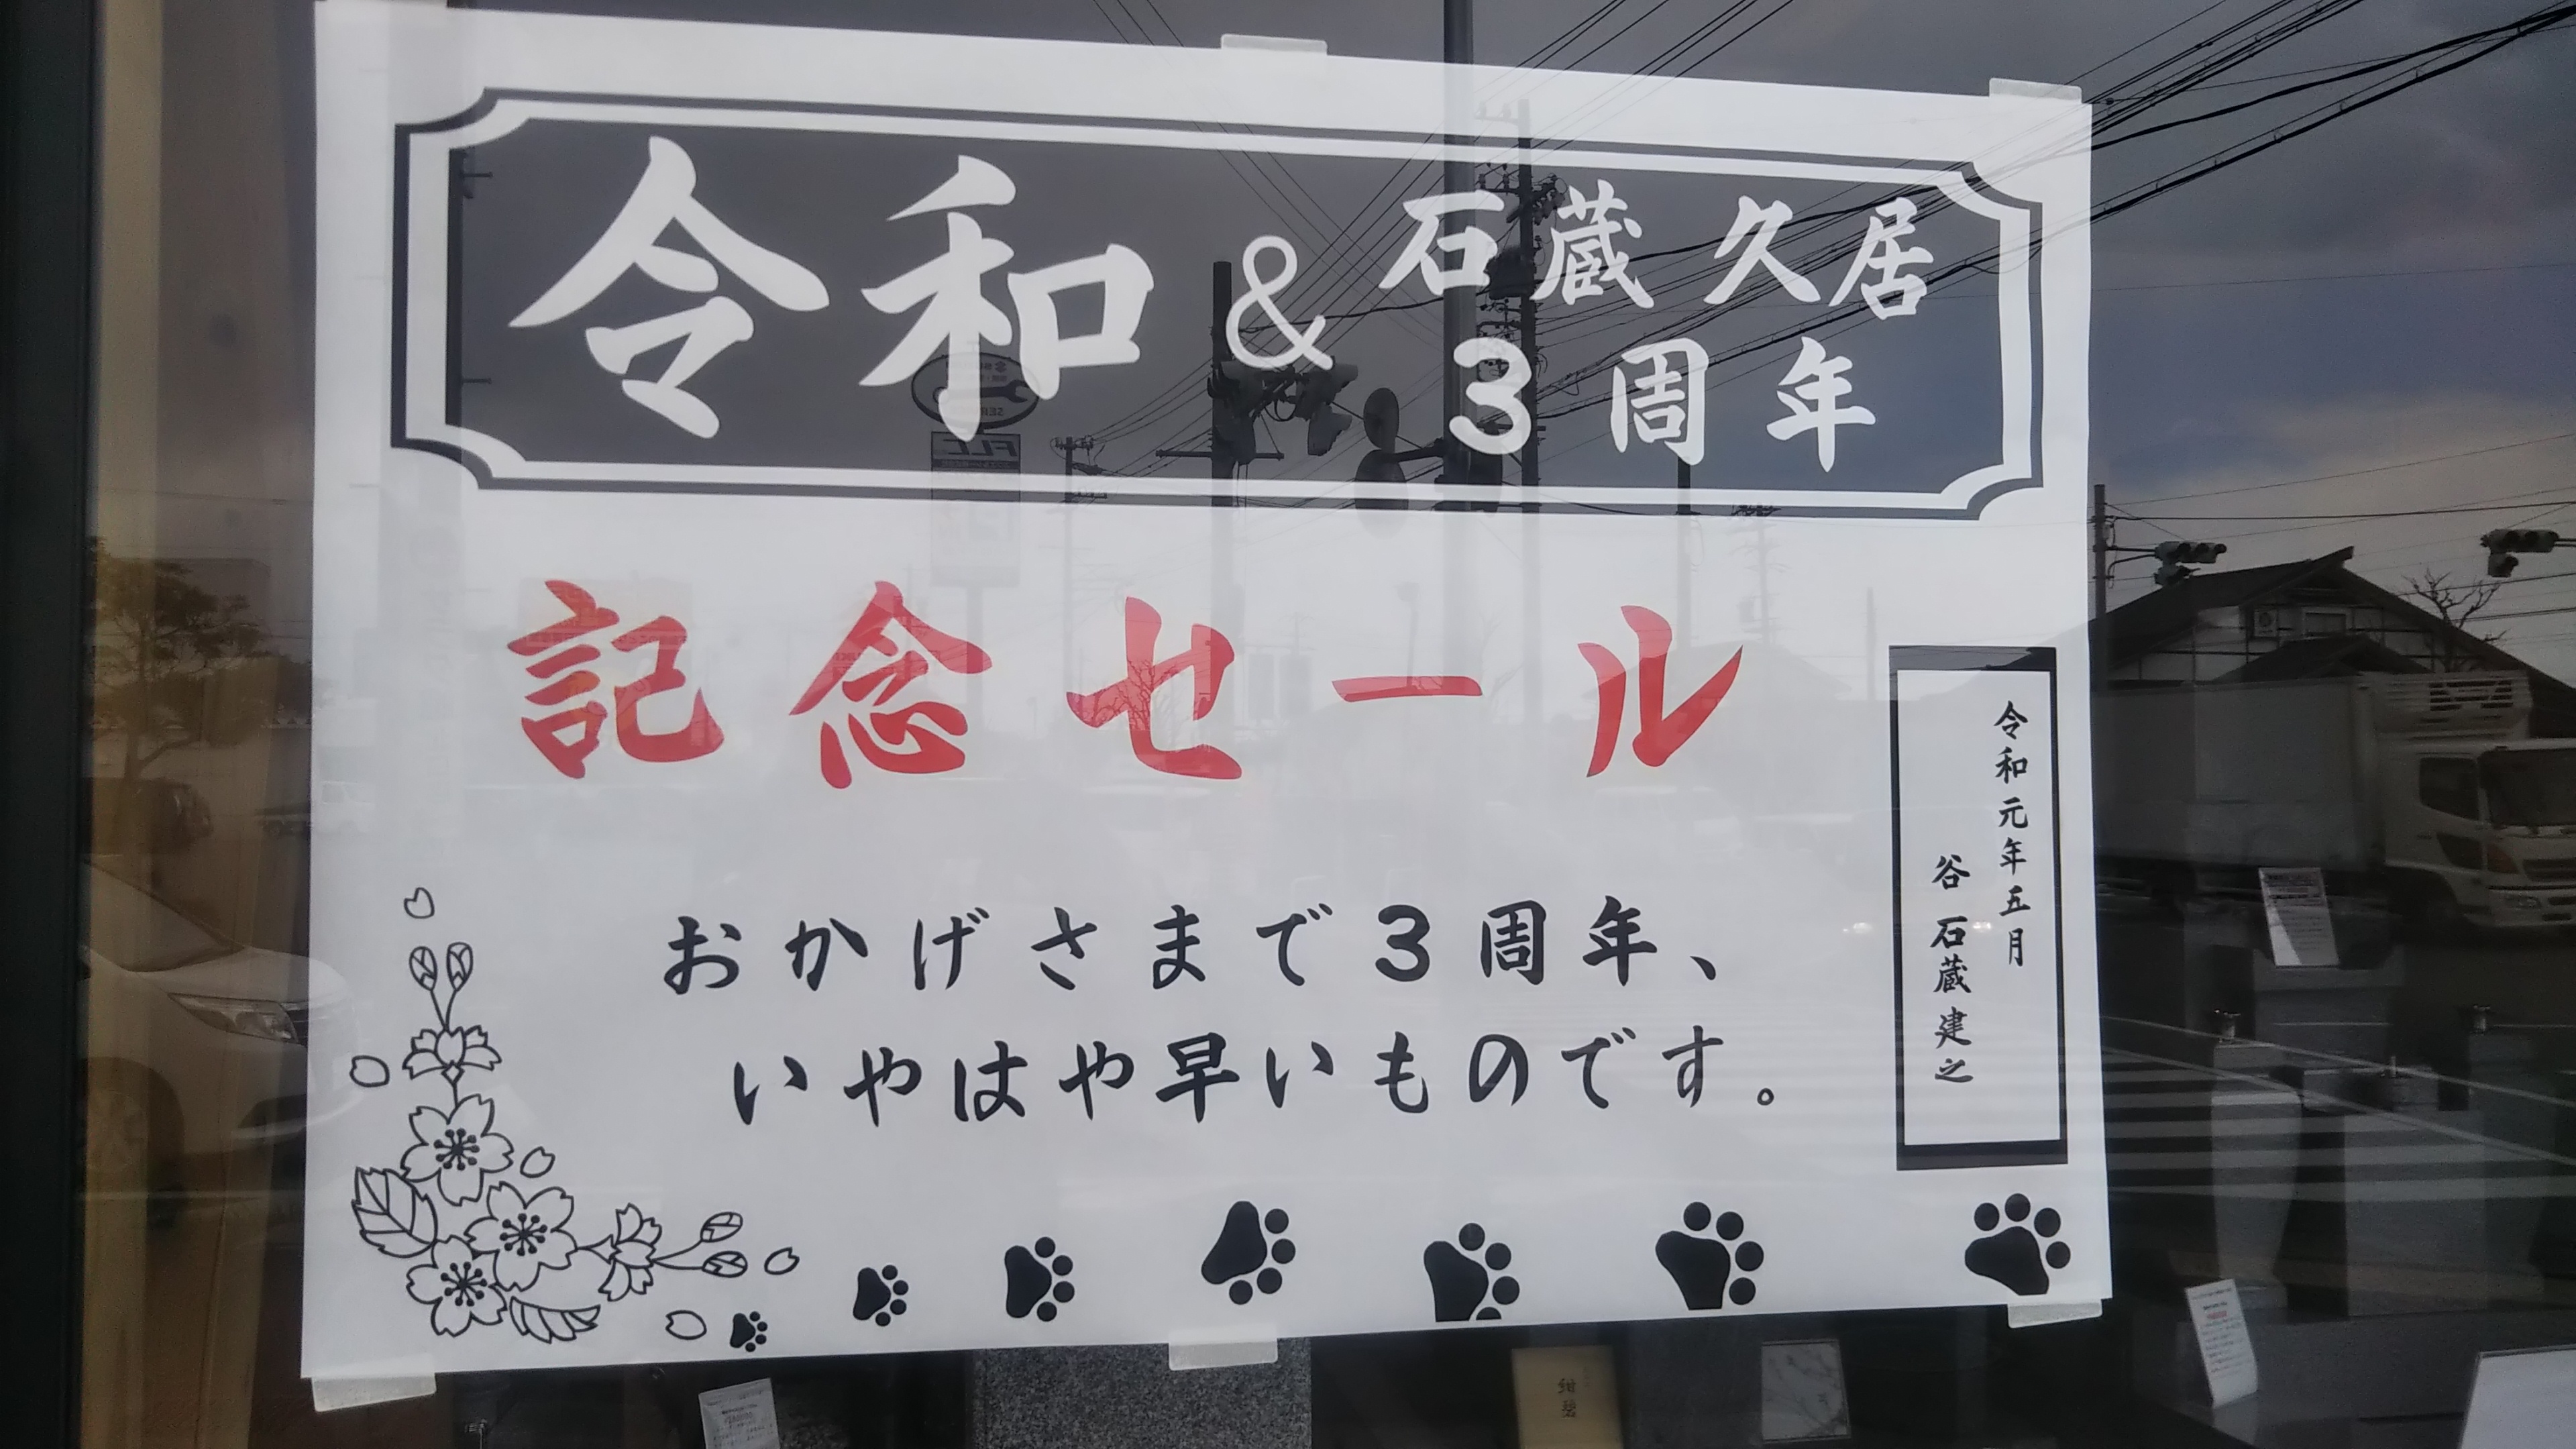 令和&石蔵久居
3周年
記念セール
おかげさまで3周年、
いやはや早いものです。
令和元年五月
谷 石蔵建之